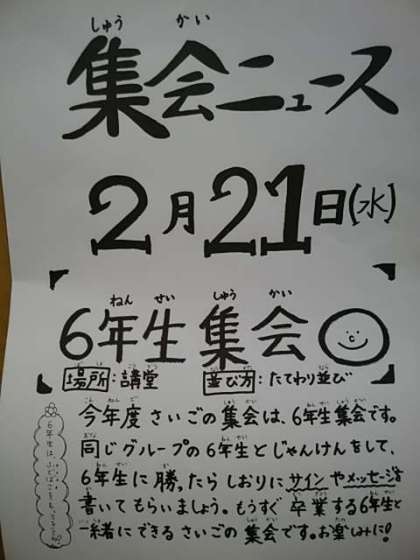 しゅう かい
集会ニュース
2月21日(水)
ねん せい しゅう かい
6年生集会
場所:講堂 並び方:たてわり並び
今年度さいごの集会は、6年生集会です。
同じグループの6年生とじゃんけんをして、
6年生に勝ったらしおりにサインやメッセージを
書いてもらいましょう。もうすぐ卒業する6年生と
一緒にできるさいごの集会です。お楽しみに!
6年生は、ふでばこをもってきてね!